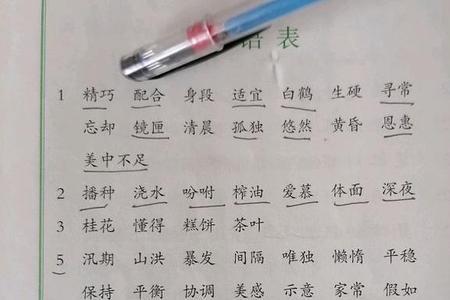 语表
1 精巧 配合 身段 适宜 白鹤 生硬 寻常
忘却 镜匣 清晨 孤独 悠然 黄昏 恩惠
美中不足
2 播种 浇水 吩咐 榨油 爱慕 体面 深夜
3 桂花 懂得 糕饼 茶叶
5） 汛期 山洪 暴发 间隔 唯独 懒惰 平稳
保持 平衡 协调 美感 示意 家常 假如